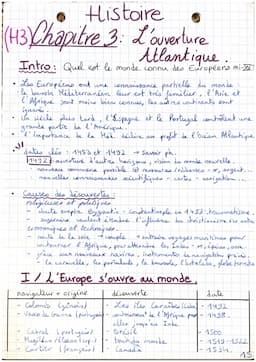 Histoire
(H3) Chapitre 3: L'ouverture
Atlantique.
Intro: Quel est le monde connu des Européens mi-XV
• Les Européens ont une connaissance partielle du monde :
le bassin Méditerranéen leur est très familier, l'Asie et
l'Afrique sont moins bien connues, les autres continents sont
ignorés.
• Un siècle plus tard, l'Espagne et le Portugal contrôlent une
grande partie de l'Amérique.
• L'importance de la Med. décline au profit de l'océan Atlantique.
dates clés : 1453 → 1492 → Savoir ph.
1492 : ouverture d'autres horizons, vision du monde nouvelle.
nouveau commerce possible
nouvelles connaissances scientifiques - cartes - navigation...
Causes des découvertes :
religieuses et politiques
- chute empire byzantin - constantinople en 1453
économiques et techniques
- route de la soie → compte → autre voyages maritimes pour
contourner l'Afrique, pour atteindre les Indes → épices, soie
- grâce aux nouveaux navires, instruments de navigation
la caravelle, les portulans, la boussole, l'astrolabe, globe terrestre
I / L'Europe s'ouvre au monde.
navigateur + origine découverte date
- Colomb (génois) Les Iles Caraïbes 1492
- Vasco de Gama (portugais) contournement de l'Afrique pour 1498
aller jusqu'en Inde
- Cabral (portugais) Brésil 1500
- Magellan (portugais) tour du monde 1519-1522
- Cartier (français) Canada 1534
15